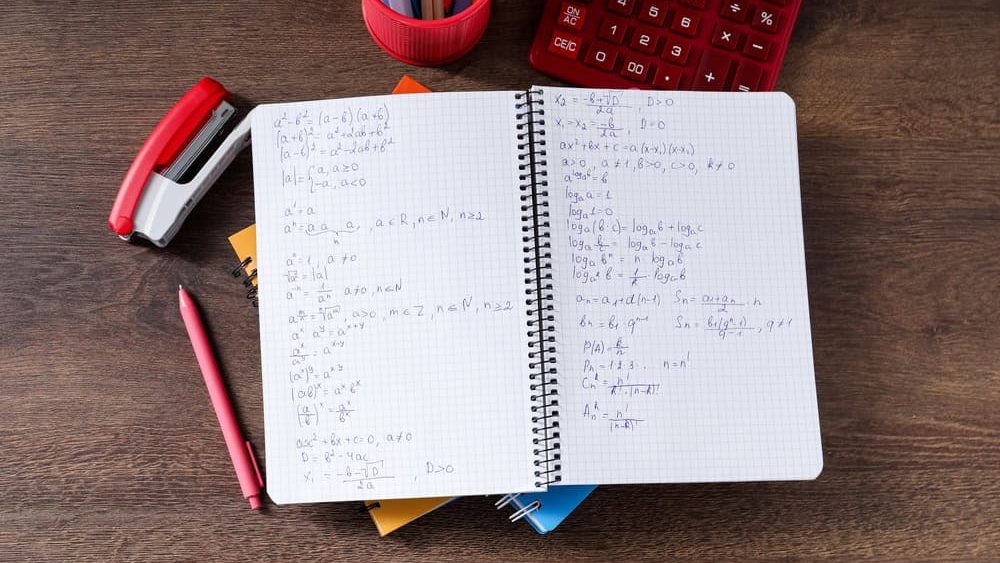 a²-b² = (a-b)(a+b)
(a+b)² = a²+2ab+b²
(a-b)² = a²-2ab+b²
|a| = {a, a≥0
-a, a<0
a¹ = a
aⁿ = a a a, a∈R, n∈N, n≥2
n
a° = 1, a≠0
√a² = |a|
a⁻ⁿ = 1/aⁿ a≠0, n∈N
a^(m/n) = ⁿ√(a^m), a>0, m∈Z, n∈N, n≥2
a^x a^y = a^(x+y)
a^x/a^y = a^(x-y)
(a^x)^y = a^(xy)
(ab)^x = a^x b^x
(a/b)^x = a^x/b^x
ax²+bx+c=0, a≠0
D = b²-4ac
x₁ = (-b-√D)/2a, D>0
x₂ = (-b+√D)/2a, D>0
x₁=x₂ = -b/2a, D=0
ax²+bx+c = a(x-x₁)(x-x₂)
a>0, a≠1, b>0, c>0, k≠0
a^(logₐb) = b
logₐ a = 1
logₐ 1 = 0
logₐ(b·c) = logₐ b + logₐ c
logₐ b/c = logₐ b - logₐ c
logₐ bⁿ = n·logₐ b
log_(a^k) b = 1/k · logₐ b
aₙ = a₁+d(n-1) Sₙ = (a₁+aₙ)/2 · n
bₙ = b₁·q^(n-1) Sₙ = b₁(qⁿ-1)/(q-1), q≠1
P(A) = k/n
Pₙ = 1·2·3·.. n=n!
Cₙ^k = n!/(k!·(n-k)!)
Aₙ^k = n!/(n-k)!
4 5 6 ÷ %
ON/AC 1 2 3 × −
CE/C 0 00 · + =